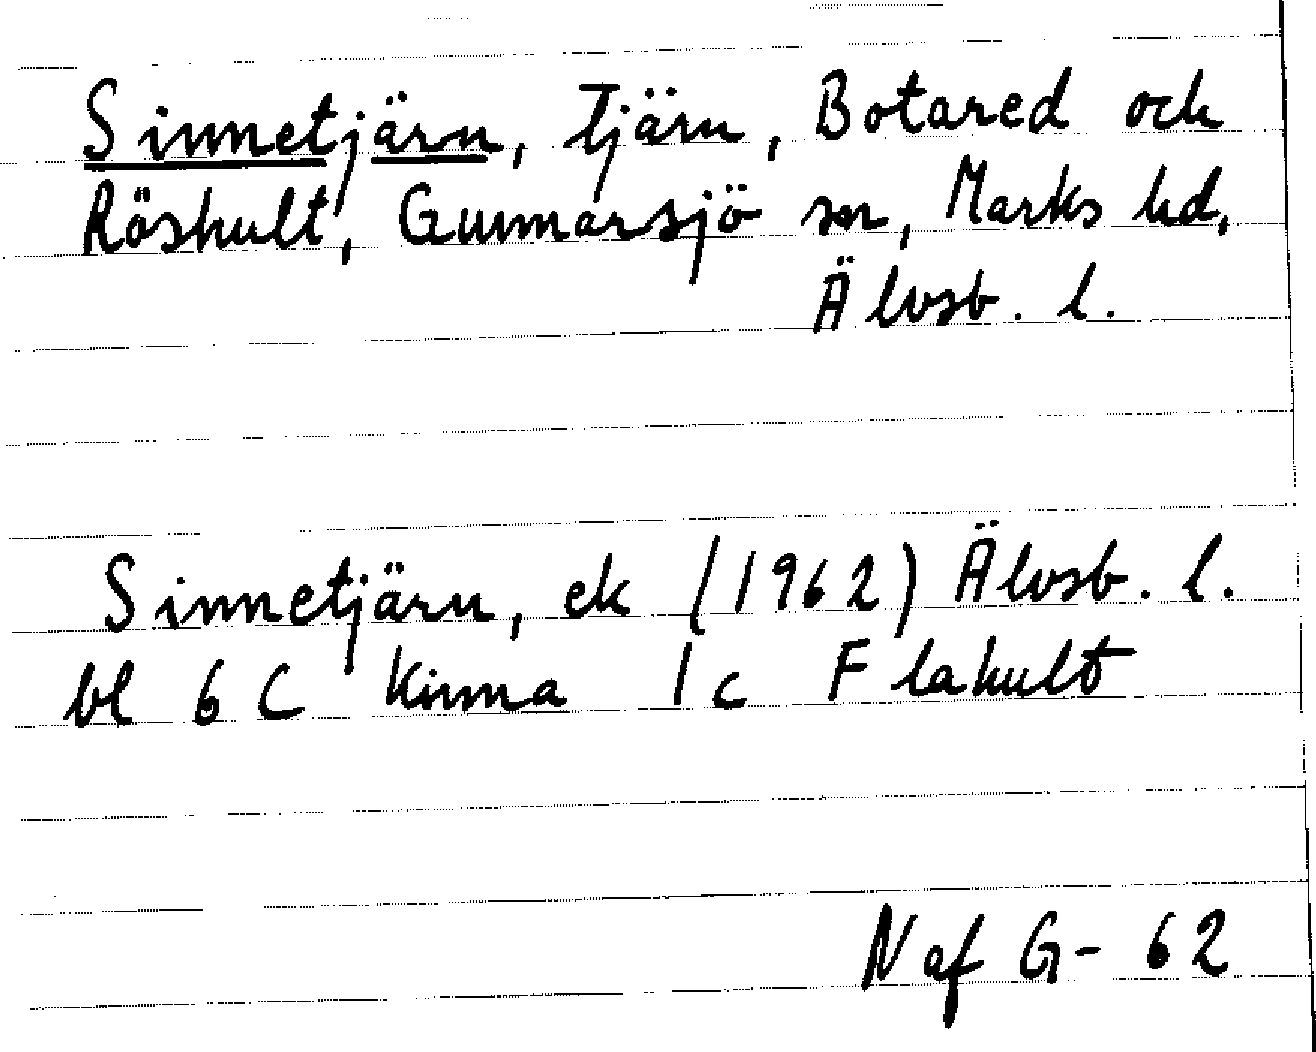 Sinnetjärn, Tjärn, Botared och
Röshult, Gunnarsjö sn, Marks hd,
Älvsb. l.
Sinnetjärn, ek (1962) Älvsb. l.
bl 6 C Kinna 1 c Flahult
Naf G- 62